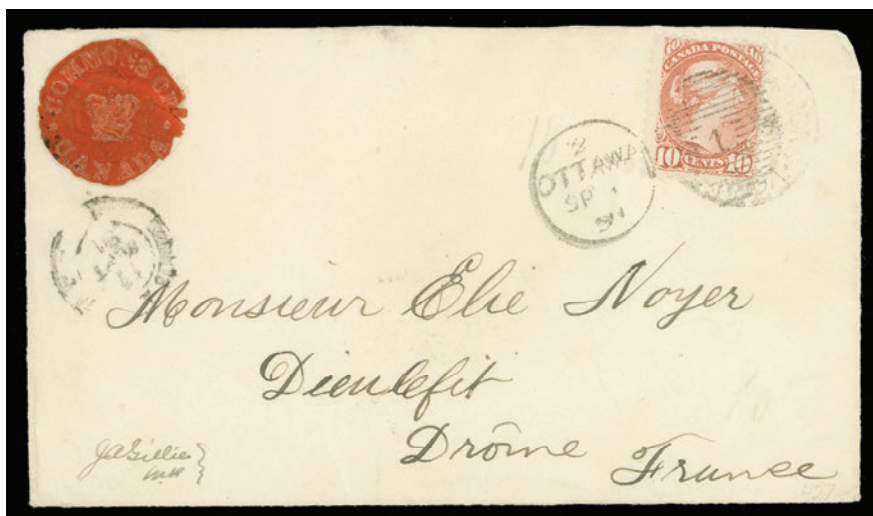 COMMONS OF CANADA
CANADA POSTAGE
10 CENTS 10
1
2
OTTAWA
SP 1
91
Monsieur Elie Noyer
Dieulefit
Drôme France
JAGillies
M.P.